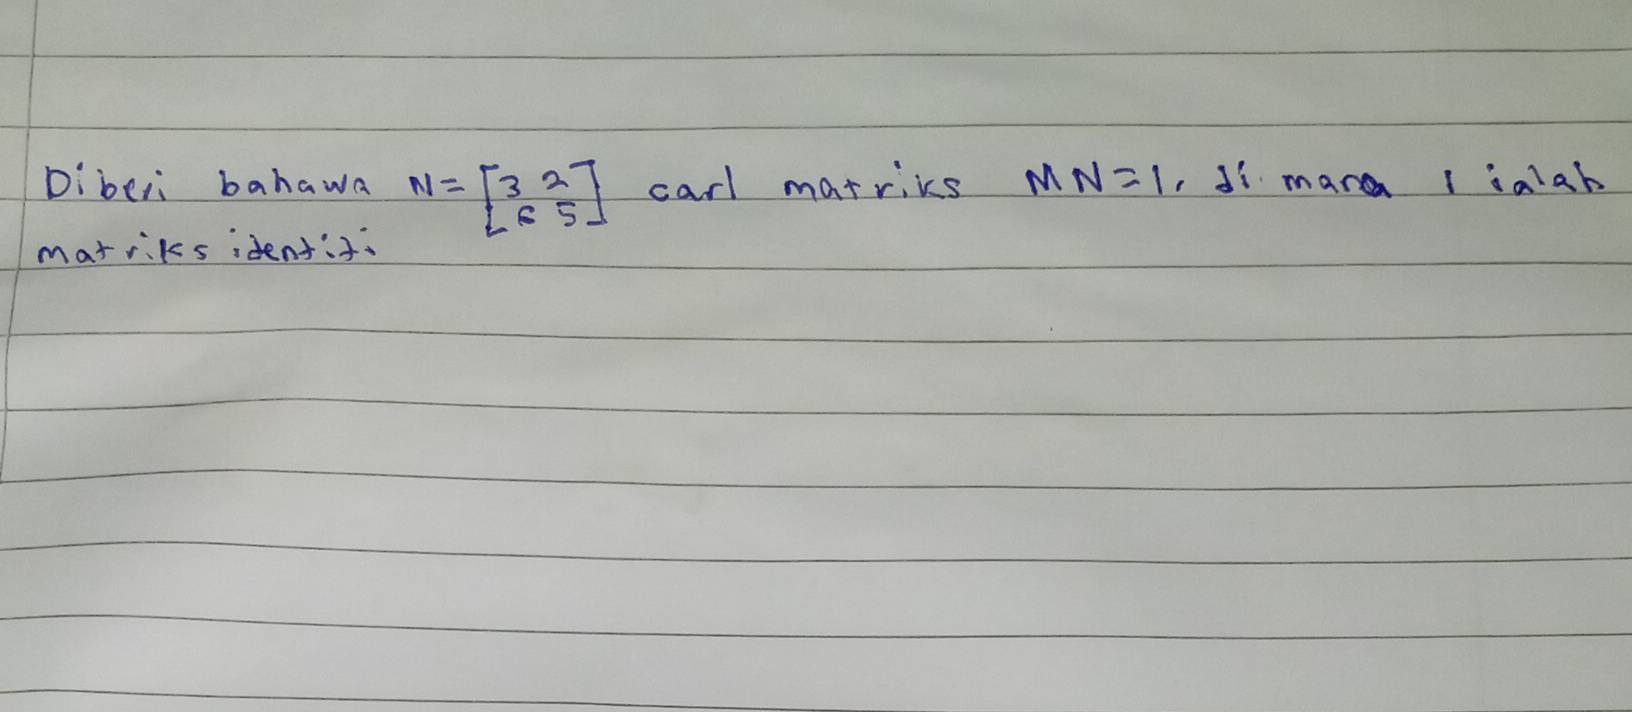 Diberi bahawa N= [3 2] carl matriks MN=1, di mana 1 ialah
[6 5]
matriks identiti